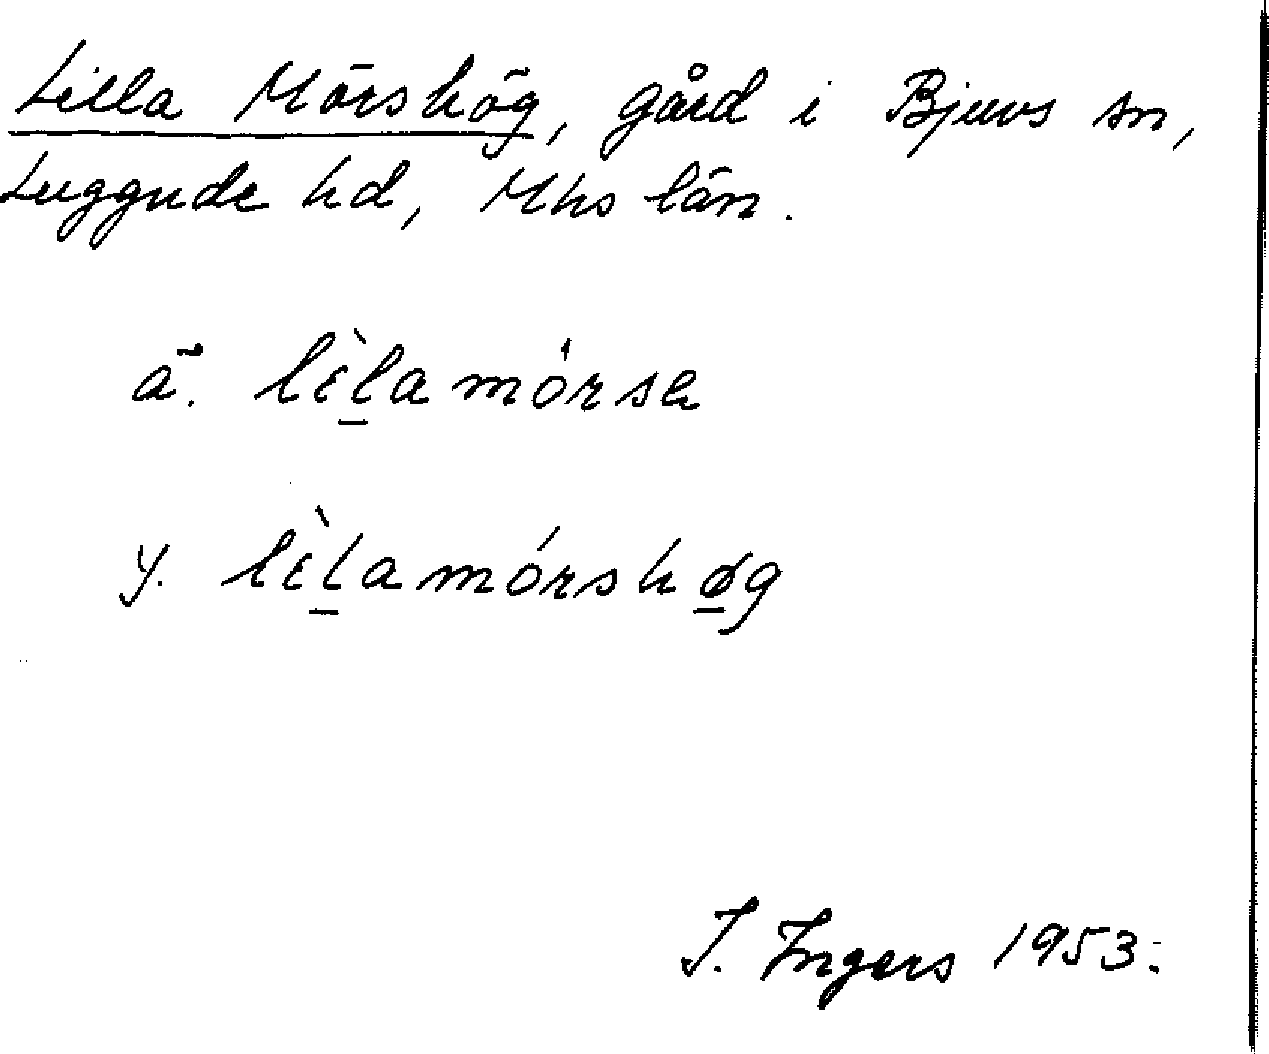 Lilla Mörshög, gård i Bjuvs sn,
Luggude hd, Mhs län.
ä. lὲḻamórsa
y. lὲḻamórshø̱g
I. Ingers 1953.